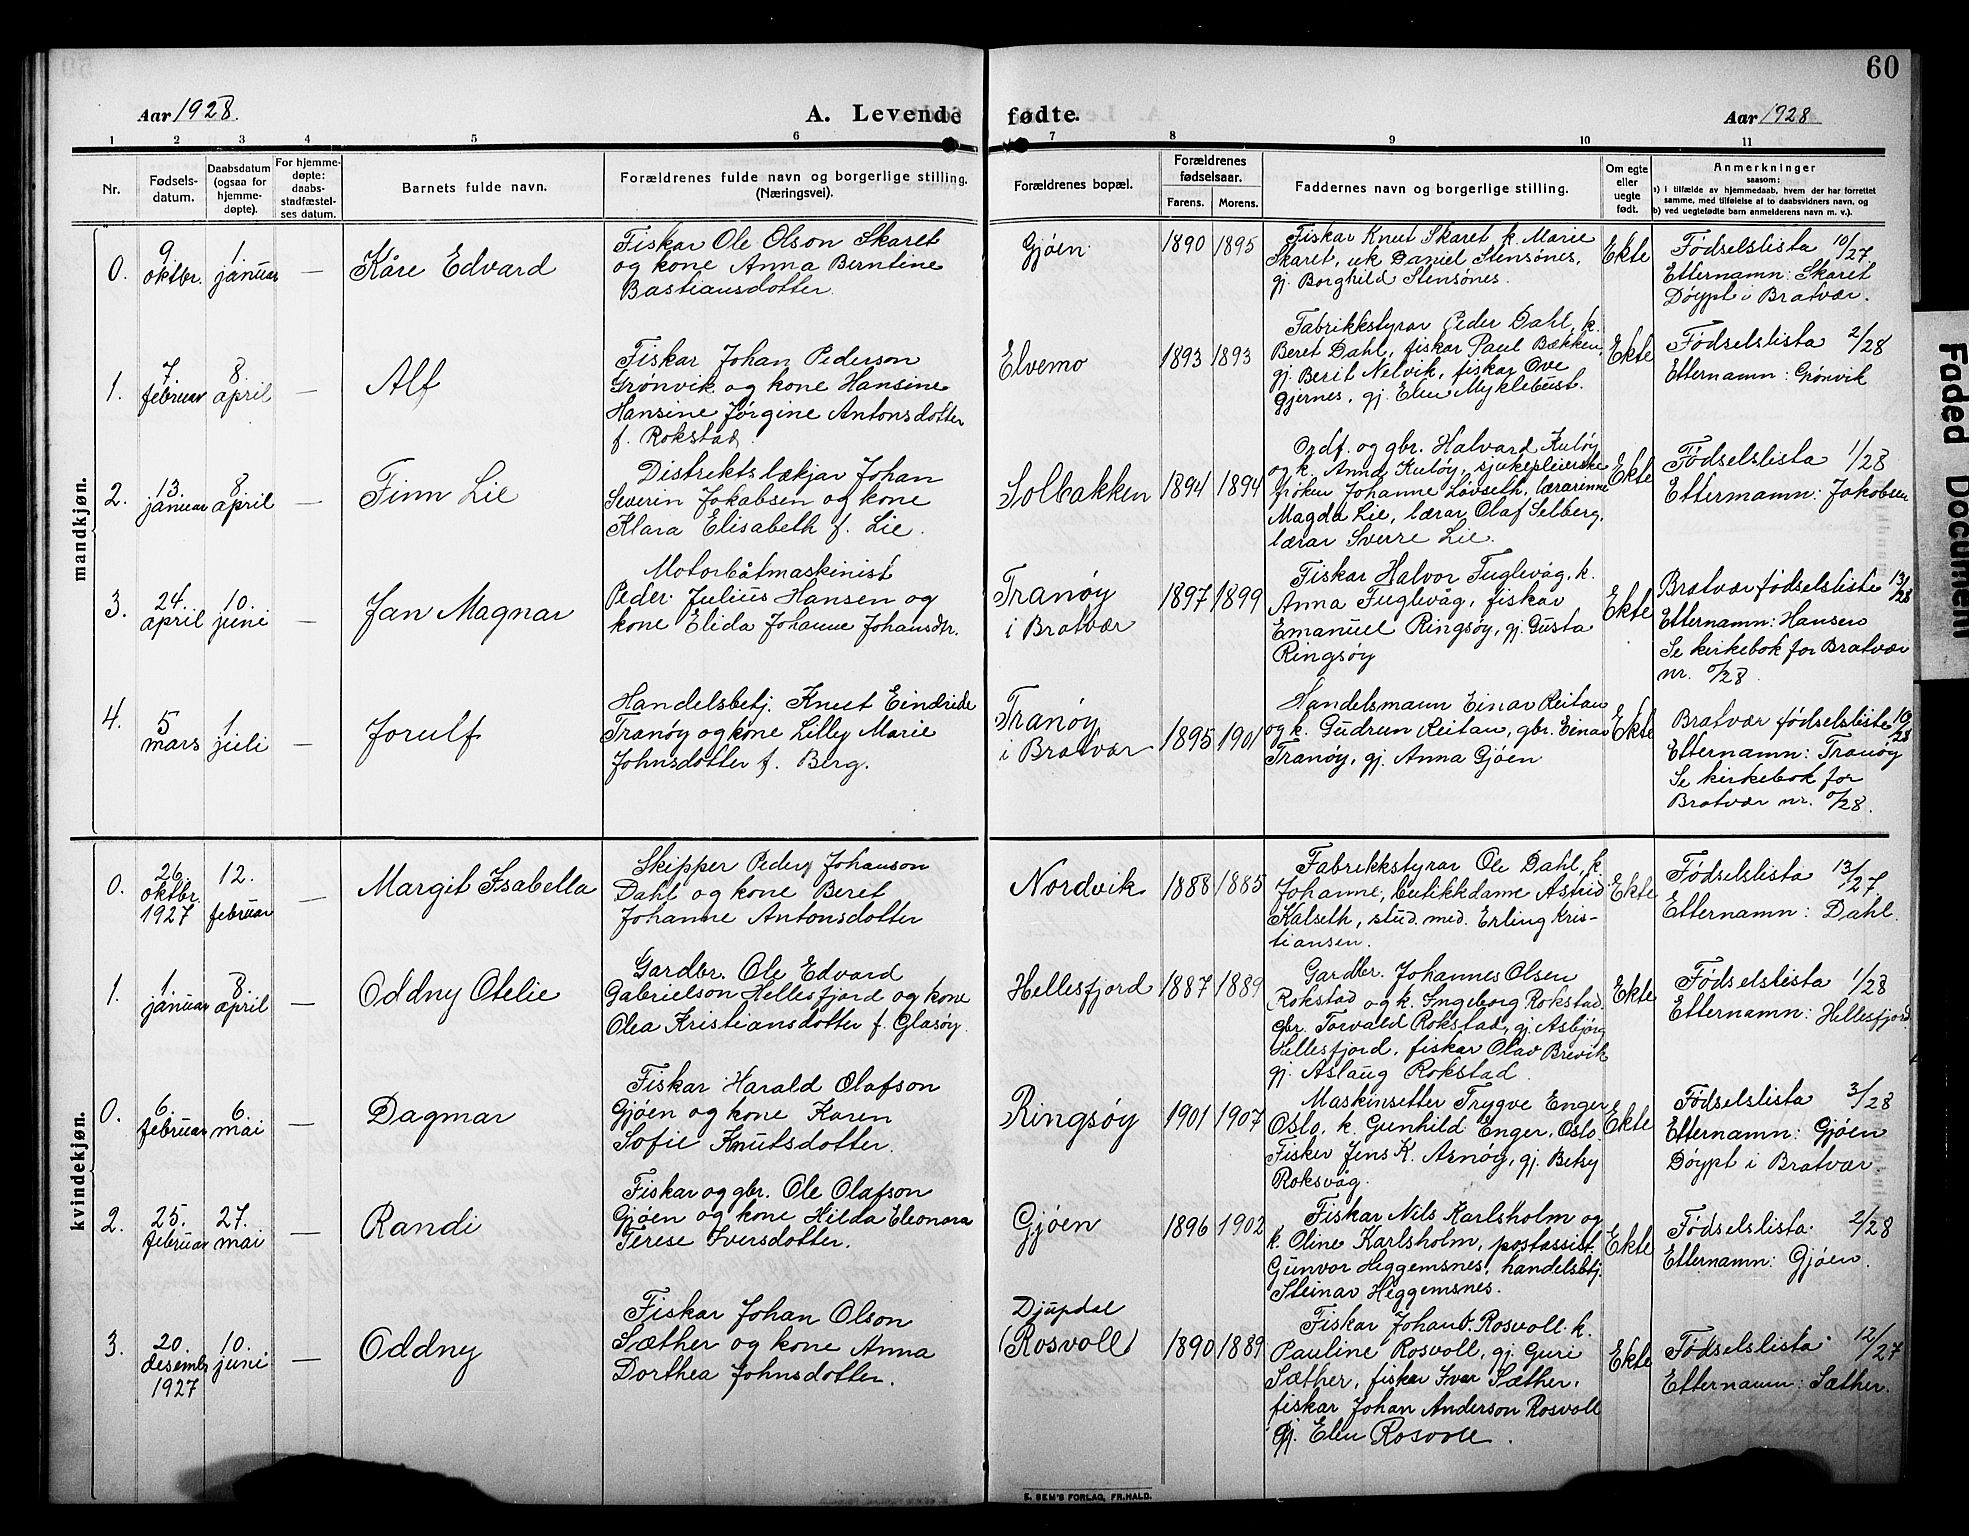 60
Aar 1928.
A. Levende fødte.
Aar 1928
1 2 3 4 5 6 7 8 9 10 11
Nr.
Fødsels-
datum.
Daabsdatum
(ogsaa for
hjemme-
døpte).
For hjemme-
døpte:
daabs-
stadfæstel-
ses datum.
Barnets fulde navn.
Forældrenes fulde navn og borgerlige stilling.
(Næringsvei).
Forældrenes bopæl.
Forældrenes
fødselsaar.
Farens. Morens.
Faddernes navn og borgerlige stilling.
Om egte
eller
uegte
født.
Anmerkninger
saasom:
a) i tilfælde av hjemmedaab, hvem der har forrettet
samme, med tilføielse av to daabsvidners navn, og
b) ved uegtefødte barn anmelderens navn m. v.).
mandkjøn.
0.
9
oktbr.
1
januar
—
Kåre Edvard
Fiskar Ole Olson Skaret
og kone Anna Berntine
Bastiansdotter.
Gjøen
1890 1895
Fiskar Knut Skaret k. Marie
Skaret, uk Daniel Stensønes,
gj. Borghild Stensønes.
Ekte
Fødselslista 10/27
Etternamn: Skaret
Døypt i Bratvær.
1.
7
februar
8
april
—
Alf
Fiskar Johan Pederson
Grønvik og kone Hansine
Hansine Jørgine Antonsdotter
f. Rokstad.
Elvemo
1893 1893
Fabrikkstyrar Peder Dahl, k.
Beret Dahl, fiskar Paul Bækken,
gj. Berit Nelvik, fiskar Ove
Gjernes, gj. Elen Myklebust.
Ekte
Fødselslista 2/28
Etternamn: Grønvik
2.
13.
januar
8
april
—
Finn Lie
Distriktslækjar Johan
Severin Jakobsen og kone
Klara Elisabeth f. Lie.
Solbakken
1894 1894
Ordf. og gbr. Halvard Kuløy
og k. Anna Kuløy, sjukepleierske
frøken Johanne Løvseth, lærarinne
Magda Lie, lærar Olaf Selberg,
lærar Sverre Lie.
Ekte
Fødselslista 1/28
Etternamn: Jakobsen
3.
24.
april
10.
juni
—
Jan Magnar
Motorbåtmaskinist
Peder Julius Hansen og
kone Elida Johanne Johansdtr.
Tranøy
i Bratvær
1897 1899
Fiskar Halvor Fuglevåg, k.
Anna Fuglevåg, fiskar
Emanuel Ringsøy, gj. Gusta
Ringsøy
Ekte
Bratvær fødselsliste 13/28
Etternamn: Hansen
Se kirkebok for Bratvær
nr. 0/28.
4.
5
mars
1
juli
—
Jorulf
Handelsbetj. Knut Eindride
Tranøy og kone Lilly Marie
Johnsdotter f. Berg.
Tranøy
i Bratvær
1895 1901
Handelsmann Einar Reitan
og k. Gudrun Reitan, gbr. Einar
Tranøy, gj. Anna Gjøen
Ekte
Bratvær fødselsliste 10/28
Etternamn: Tranøy
Se kirkebok for
Bratvær nr. 0/28.
kvindekjøn.
0.
26.
oktbr.
1927
12.
februar
—
Margit Isabella
Skipper Peder Johanson
Dahl og kone Beret
Johanne Antonsdotter
Nordvik
1888 1885
Fabrikkstyrar Ole Dahl, k.
Johanne, butikkdame Astrid
Kalseth, stud. med. Erling Kris-
tiansen.
Ekte
Fødselslista 13/27.
Etternamn: Dahl.
1.
1
januar
8.
april
—
Oddny Otelie
Gardbr. Ole Edvard
Gabrielson Hellesfjord og kone
Olea Kristiansdotter f. Glasøy.
Hellesfjord
1887 1889
Gardbr. Johannes Olsen
Rokstad og k. Ingeborg Rokstad.
gbr. Torvald Rokstad, gj. Asbjørg
Hellesfjord, fiskar Olav Brevik
gj. Aslaug Rokstad.
Ekte
Fødselslista 1/28
Etternamn: Hellesfjord
0.
6.
februar
6.
mai
—
Dagmar
Fiskar Harald Olafson
Gjøen og kone Karen
Sofie Knutsdotter.
Ringsøy
1901 1907
Maskinsetter Trygve Enger
Oslo, k. Gunhild Enger, Oslo.
Fisker Jens K. Asnøy, gj. Betsy
Roksvåg.
Ekte
Fødselslista 3/28
Etternamn: Gjøen
Døypt i Bratvær.
2.
25.
februar
27.
mai
—
Randi
Fiskar og gbr. Ole Olafson
Gjøen og kone Hilda Eleonora
Terese Iversdotter.
Gjøen
1896 1902
Fiskar Nils Karlsholm og
k. Oline Karlsholm, postassist.
Gunvor Heggemsnes, handelsbtj.
Steinar Heggemsnes.
Ekte
Fødselslista. 2/28
Etternamn: Gjøen.
3.
20.
desembr
1927
10.
juni
—
Oddny
Fiskar Johan Olson
Sæther og kone Anna
Dorthea Johnsdotter.
Djupdal
(Rosvoll)
1890 1889
Fiskar Johan O. Rosvoll k.
Pauline Rosvoll, gj. Guri
Sæther, fiskar Ivar Sæther,
fiskar Johan Anderson Rosvoll
gj. Elen Rosvoll.
Ekte
Fødselslista 12/27
Etternamn: Sæther.
E. SEM'S FORLAG, FR.HALD.
Faded Document